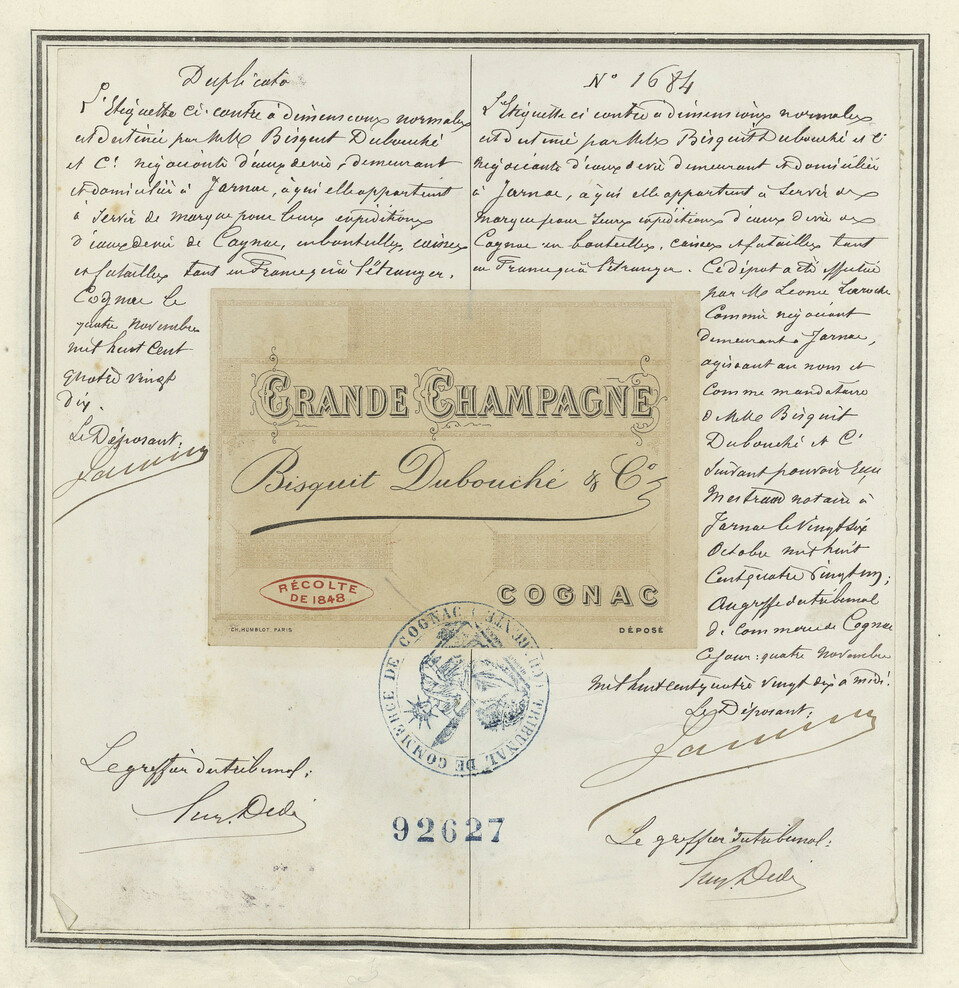 Duplicata
L'Etiquette ci-contre à dimensions normales
est destinée par MM. Bisquit Dubouché
et Cie négociants d'eaux de vie, demeurant
et domiciliés à Jarnac, à qui elle appartient
à servir de marque pour leurs expéditions
d'eaux de vie de Cognac, en bouteilles, caisses
et futailles tant en France qu'à l'étranger.
Cognac le
quatre novembre
mil huit cent
quatre vingt
dix.
Le Déposant:
Le greffier du tribunal:
N° 1684
L'Etiquette ci contre à dimensions normales
est destinée par MM. Bisquit Dubouché et Cie
Négociants d'eaux de vie demeurant et domiciliés
à Jarnac, à qui elle appartient à servir de
marque pour leurs expéditions d'eaux de vie de
Cognac en bouteilles, caisses et futailles tant
en France qu'à l'étranger. Ce dépôt a été effectué
par M. Léonce Laroche
Commis négociant
demeurant à Jarnac,
agissant au nom et
comme mandataire
de MM. Bisquit
Dubouché et Cie
suivant pouvoir reçu
Mestraud notaire à
Jarnac le vingt six
Octobre mil huit
cent quatre vingt un;
au greffe du tribunal
de Commerce de Cognac
ce jour: quatre Novembre
mil huit cent quatre vingt dix à midi.
Le Déposant:
Le greffier du tribunal:
GRANDE CHAMPAGNE
Bisquit Dubouché & Co
RÉCOLTE
DE 1848
COGNAC
CH. HUMBLOT. PARIS
DÉPOSÉ
TRIBUNAL DE COMMERCE DE COGNAC
92627